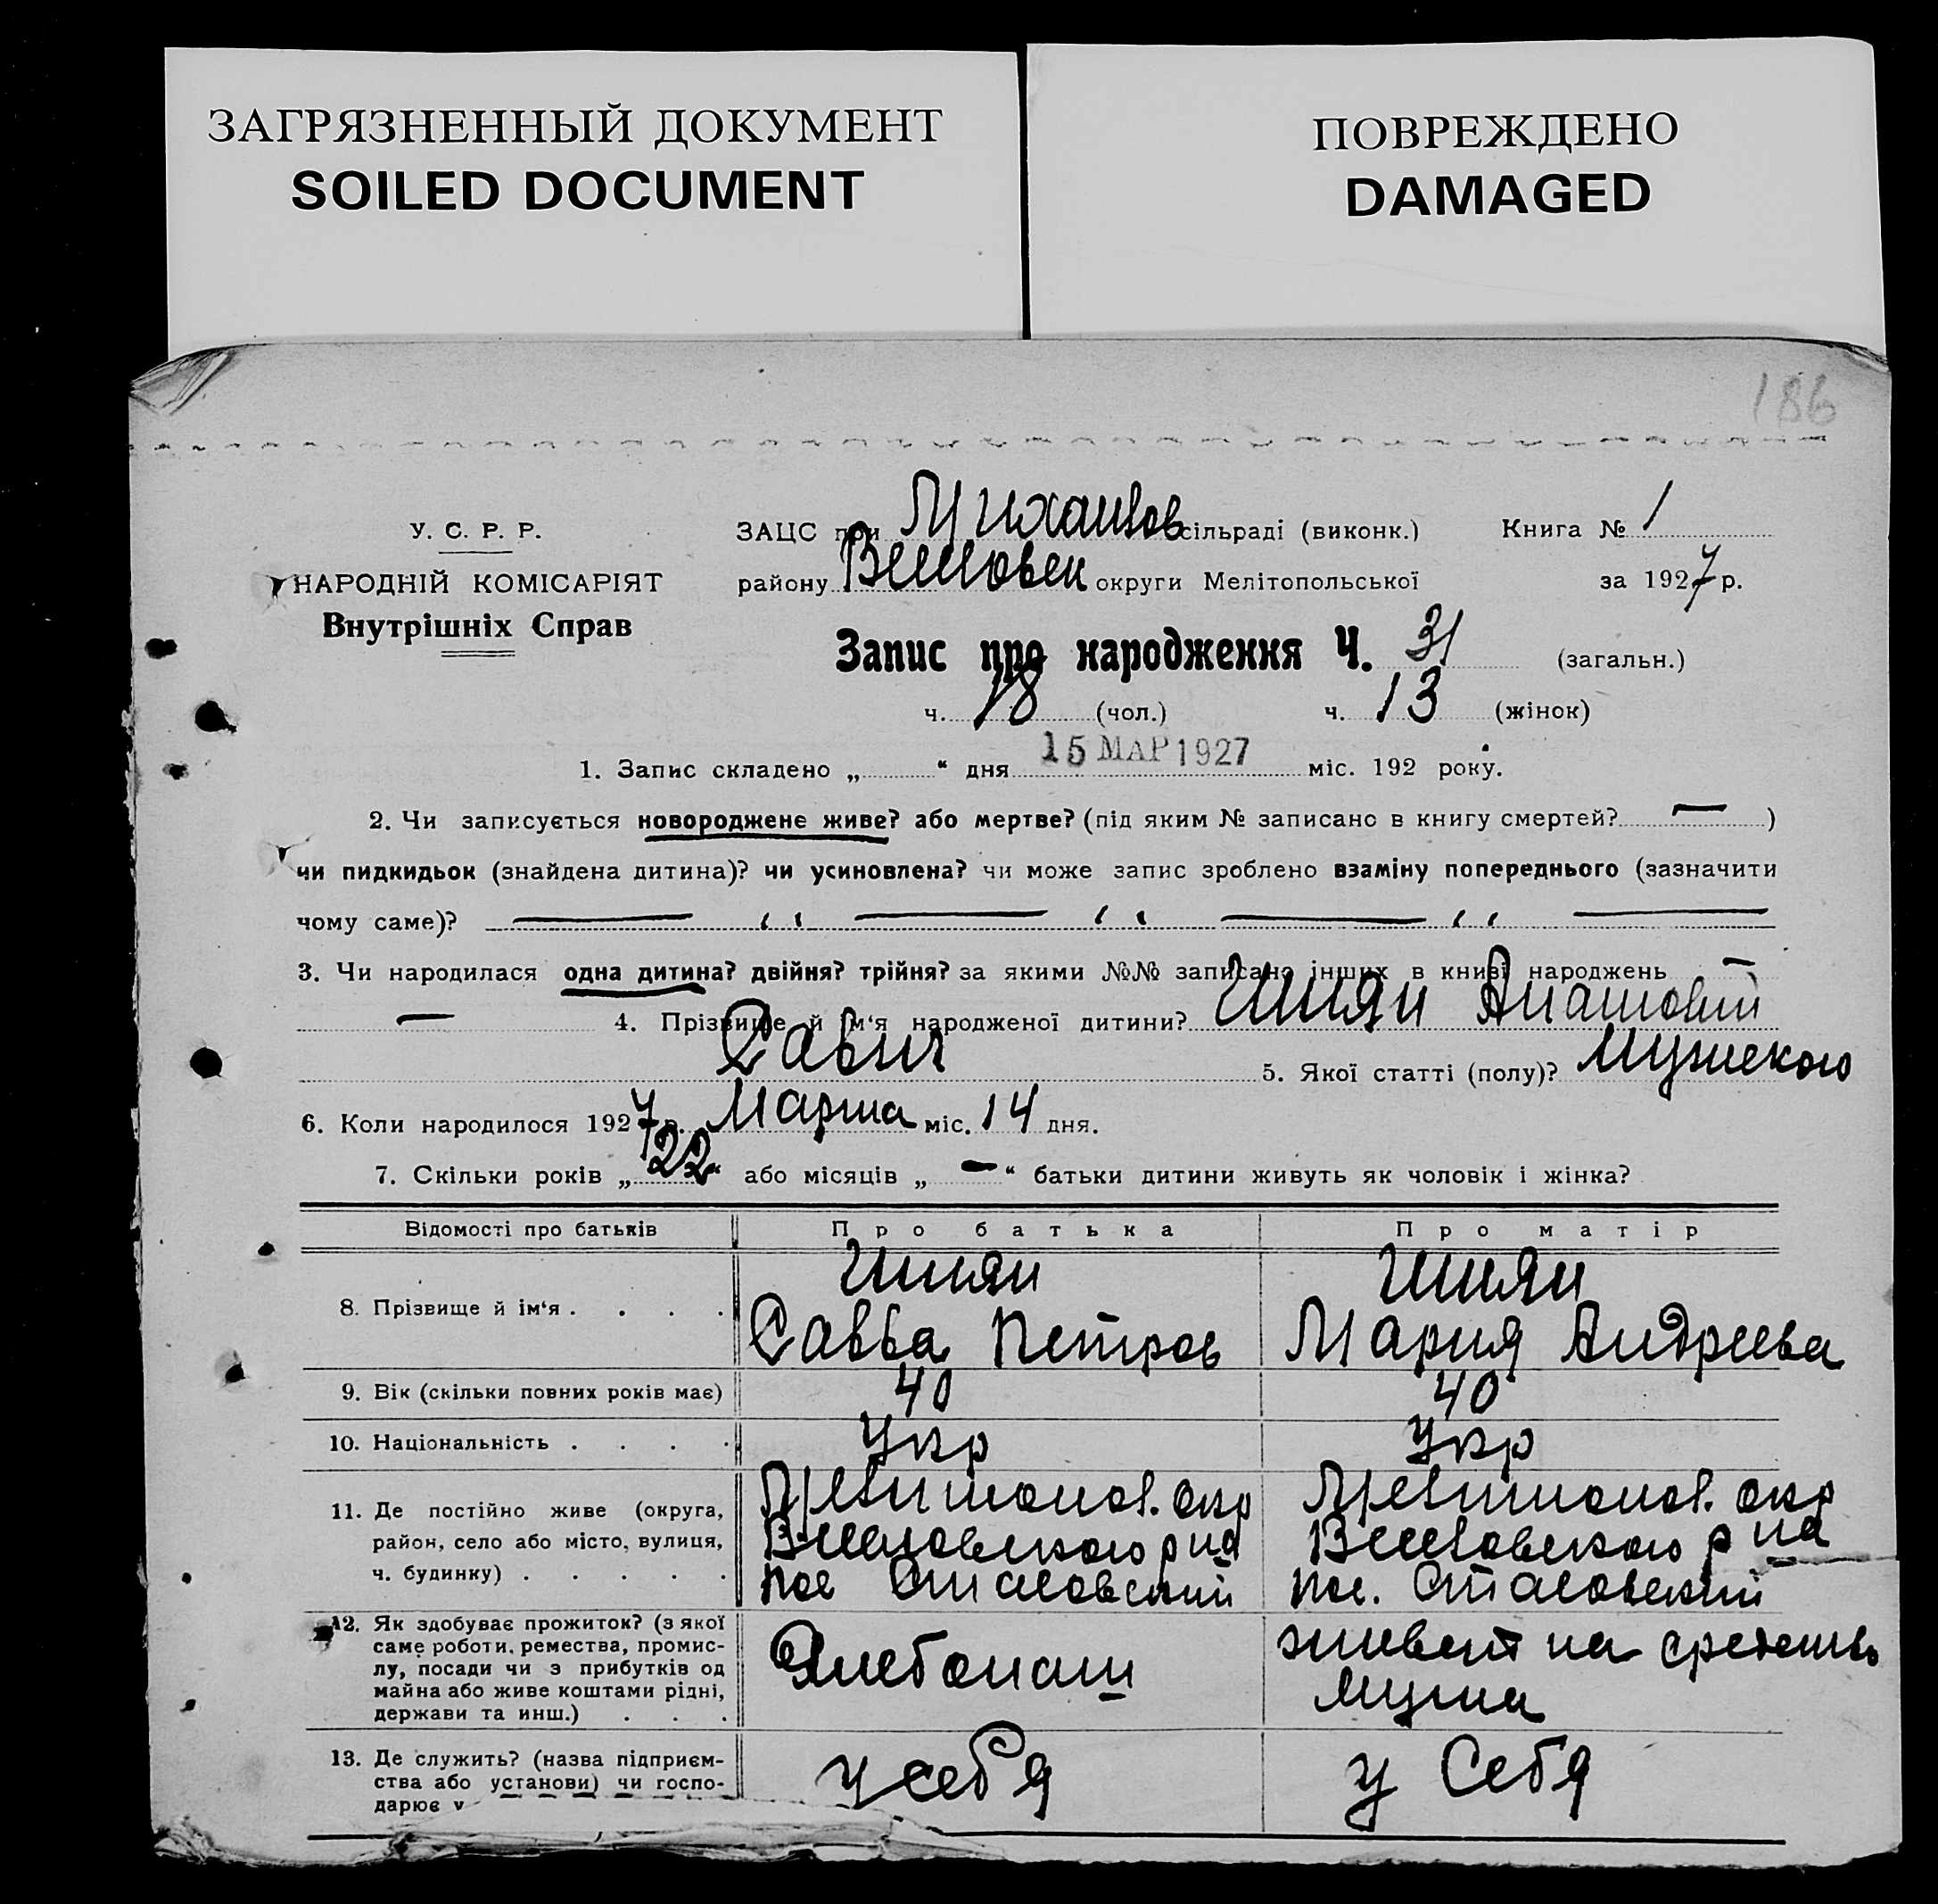 ЗАГРЯЗНЕННЫЙ ДОКУМЕНТ
SOILED DOCUMENT
ПОВРЕЖДЕНО
DAMAGED
186
У. С. Р. Р.
НАРОДНІЙ КОМІСАРІЯТ
Внутрішніх Справ
ЗАЦС при Михайлов сільраді (виконк.) Книга № 1
району округи Мелітопольської за 1927 р.
Запис про народження Ч. 31 (загальн.)
ч. 18 (чол.) ч. 13 (жінок)
1. Запис складено „ “ дня 15 МАР 1927 міс. 192 року.
2. Чи записується новороджене живе? або мертве? (під яким № записано в книгу смертей? — )
чи пидкидьок (знайдена дитина)? чи усиновлена? чи може запис зроблено взаміну попереднього (зазначити
чому саме)? — ״ — ״ — ״ —
3. Чи народилася одна дитина? двійня? трійня? за якими №№ записано інших в книзі народжень —
— 4. Прізвище й ім‘я народженої дитини? Шиян Анатолий
Савич 5. Якої статті (полу)? Мужского
6. Коли народилося 1927 р. Марта міс. 14 дня.
7. Скільки років „22“ або місяців „—“ батьки дитини живуть як чоловік і жінка?
Відомості про батьків Про батька Про матір
8. Прізвище й ім‘я . . . . Шиян Шиян
Савва Петров Мария Андреева
9. Вік (скільки повних років має) 40 40
10. Національність . . . . Укр Укр
11. Де постійно живе (округа, Мелитопол. окр Мелитопол. окр
район, село або місто, вулиця, р на р на
ч. будинку) . . . . . пос пос.
12. Як здобуває прожиток? (з якої
саме роботи, ремества, промис-
лу, посади чи з прибутків од
майна або живе коштами рідні,
держави та инш.) . . .
Хлебопаш живет на средства
мужа
13. Де служить? (назва підприєм-
ства або установи) чи госпо-
дарює у
у себя у Себя